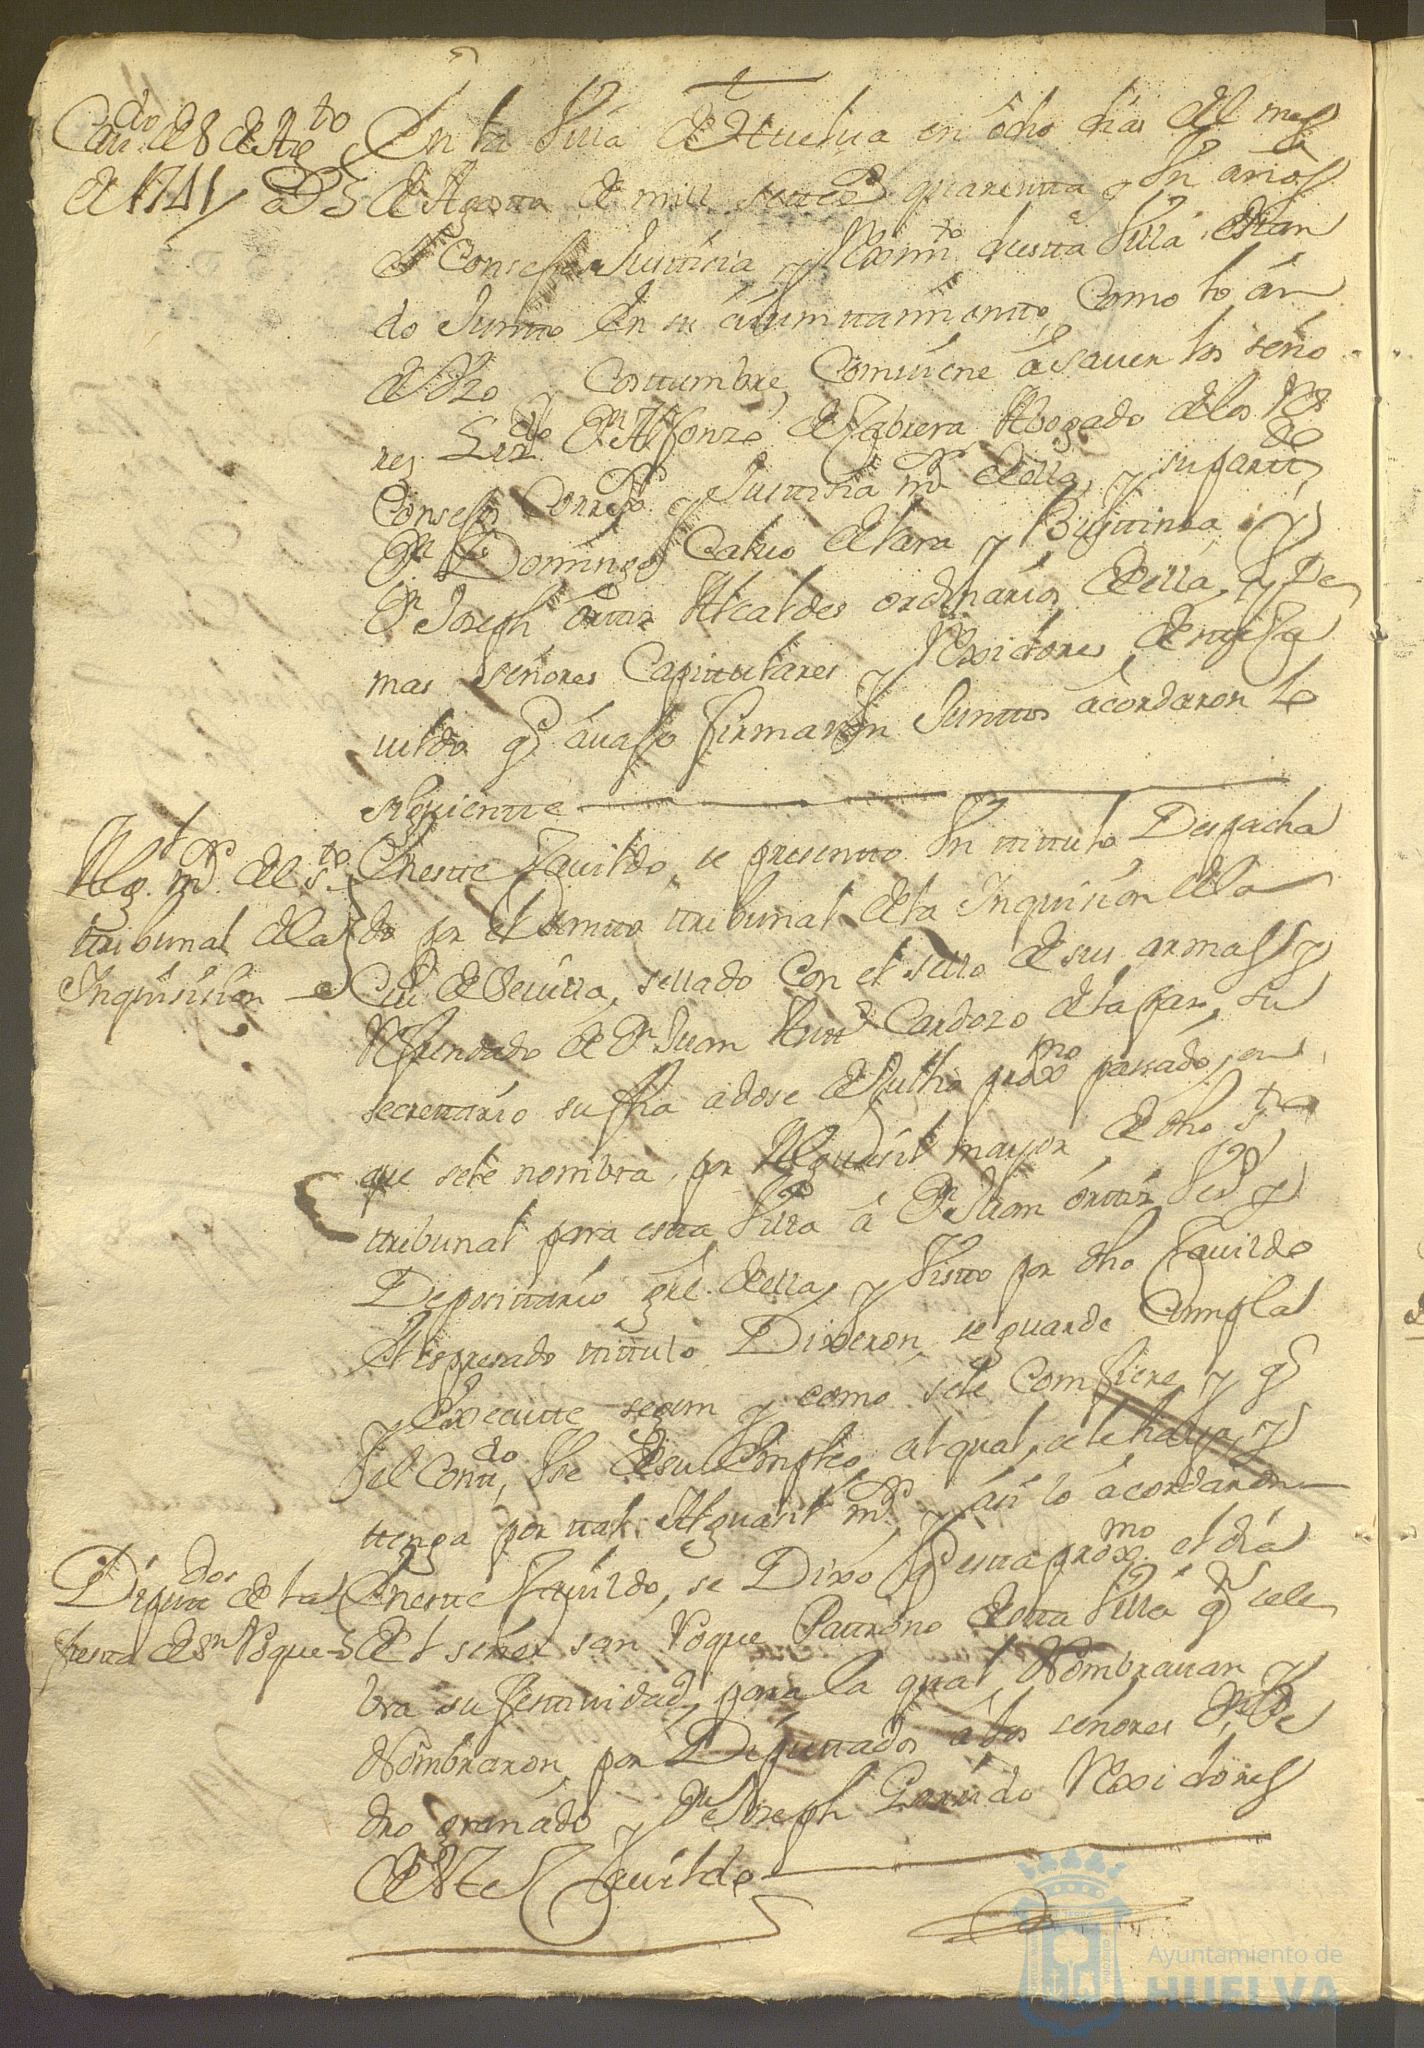 Cav.do de 8 de Ag.to
de 1741
En la Villa de Huelua en ocho dias del mes
de Agosto de mill settez.s quarenta y Un años
el Consejo Justicia y Reximi.to desta Villa estan
do Juntto En su aiumttamiento Como lo án
de Uzo y Costtumbre, Combiene á saver los seño
res Liz.do D.n Alfonzo de Cabrera Abogado de los R.s
Consejos Correx.or y Justticia m.r de ella, y su partt.do
D.n Domingo Calvo de Lara y
D.n Joseph órttiz Alcaldes ordinarios de ella, y De
mas señores Capittulares y Rexidores de este Ca
uildo q.e áuajo firmaron Junttos ácordaron lo
siguientte
Alg.l m.r del s.to
tribunal de la
Inquisision
Enestte Cauildo, se presentto Un tittulo Despacha
do por el s.to tribunal de la Inquision de la
Ciu.d de Seuilla, sellado Con el sello de sus armas y
Refrendado de D.n Juan Antt.o Cardozo de la paz, su
secrettario su fha a dose de Julio prox.mo passado, en
que se le nombra, por Alguasil mayor de dho s.to
ttribunal para estta Villa á D.n Juan órttiz Vez.o y
Deposittario gral. de ella, y Visto por dho Cauildo
el espresado tittulo Dixeron, se guarde Cumpla
y Execute segun y como se le Comfiere, y q.e
el Contt.do Use de su Empleo, al qual, se le haya, y
ttenga por ttal Alguasil m.r y ási lo ácordaron
Diputt.dos de la
fiesta de S.n Roque
Enestte Cauildo, se Dixo q.e estta prox.mo el dia
del señor san Roque Pattrono de esta Villa q.e sele
bra su festtiuidad, para la qual Nombrauan y
Nombraron por Diputtados á los señores D.n Pe
dro granádo y D.n Joseph Garrido Rexidores
de estte Cauildo
Ayuntamiento de
HUELVA